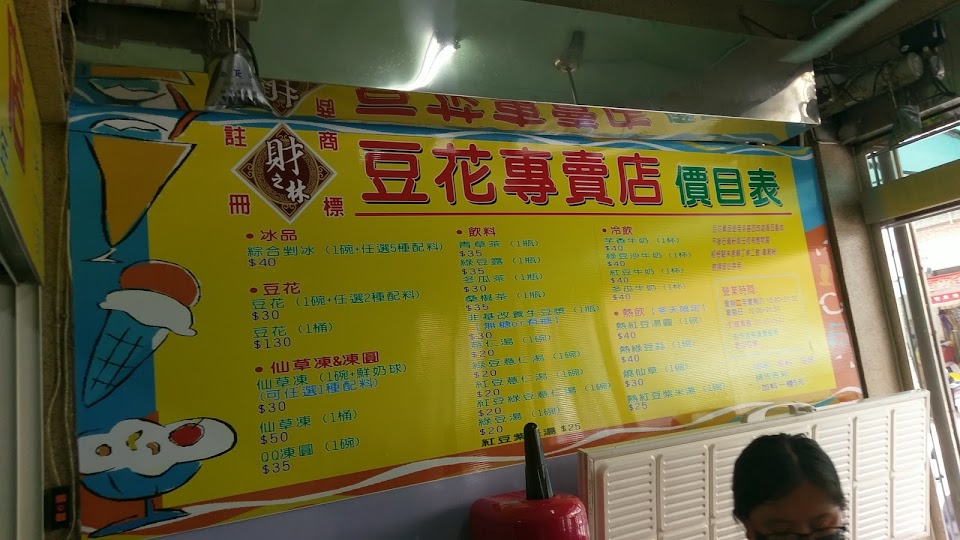 註冊
商標
財之林
豆花專賣店 價目表
• 冰品
綜合剉冰（1碗+任選5種配料）
$40
• 豆花
豆花（1碗+任選2種配料）
$30
豆花（1桶）
$130
• 仙草凍&凍圓
仙草凍（1碗+鮮奶球）
(可任選1種配料)
$30
仙草凍（1桶）
$50
QQ凍圓（1碗）
$35
• 飲料
青草茶（1瓶）
$35
綠豆露（1瓶）
$35
冬瓜茶（1瓶）
$30
桑椹茶（1瓶）
$35
非基改養生豆漿（1瓶）
【無糖or有糖】
$30
薏仁湯（1碗）
$20
綠豆薏仁湯（1碗）
$20
紅豆薏仁湯（1碗）
$20
紅豆綠豆薏仁湯（1碗）
$20
綠豆湯（1碗）
$20
紅豆紫 湯 $25
• 冷飲
芋香牛奶（1杯）
$40
綠豆沙牛奶（1杯）
$40
紅豆牛奶（1杯）
$40
冬瓜牛奶（1杯）
$40
• 熱飲【冬天限定】
熱紅豆湯圓（1碗）
$40
熱綠豆蒜（1碗）
$40
燒仙草（1碗）
$30
熱紅豆紫米湯（1碗）
$25
營業時間